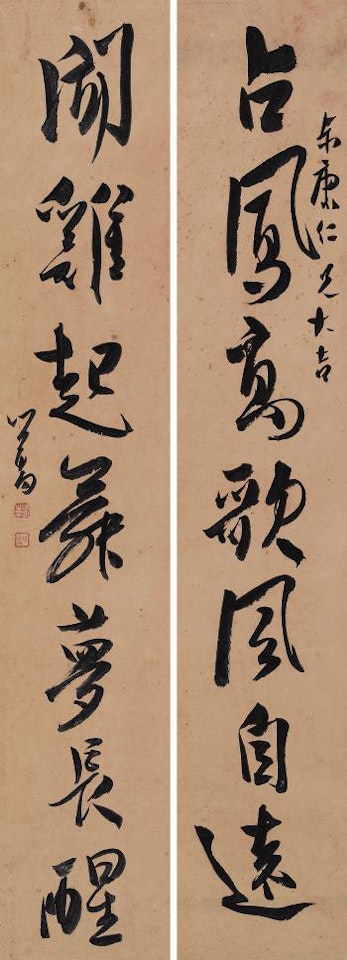 占鳳高歌風自遠
康仁兄大吉
聞雞起舞夢長醒
心畬